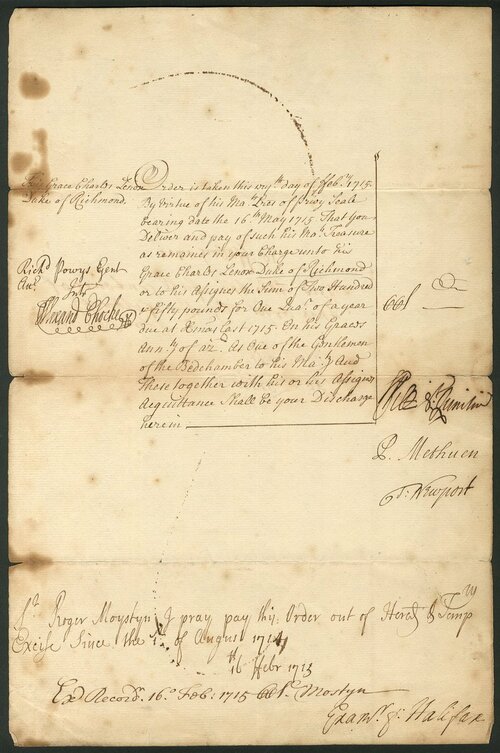 His Grace Charles Lenox
Duke of Richmond.
Richd Powys Gent
Order is taken this day of ffebry 1715.
By Virtue of his Mats Lres of Privy Seale
bearing date the 16th May 1715 That you
Deliver and pay of such his Mats Treasure
as remaines in your Charge unto his
Grace Charles Lenox Duke of Richmond
or to his Assignes the Sume of Two Hundred
& fifty pounds for One Quar of a year
due at Xmas last 1715. On his Graces
Annty of As One of the Gentlemen
of the Bedchamber to his Maty And
These together with his or his Assignes
Acquittance Shall be your Discharge
herein
P. Methuen
T: Newport
Sr Roger Moystyn I pray pay this Order out of Hered & Tempry
Excise Since the of August 1714
16 ffebr 1715
Exd Recordr. 16o Feb: 1715 Mostyn
Examr. Halifax